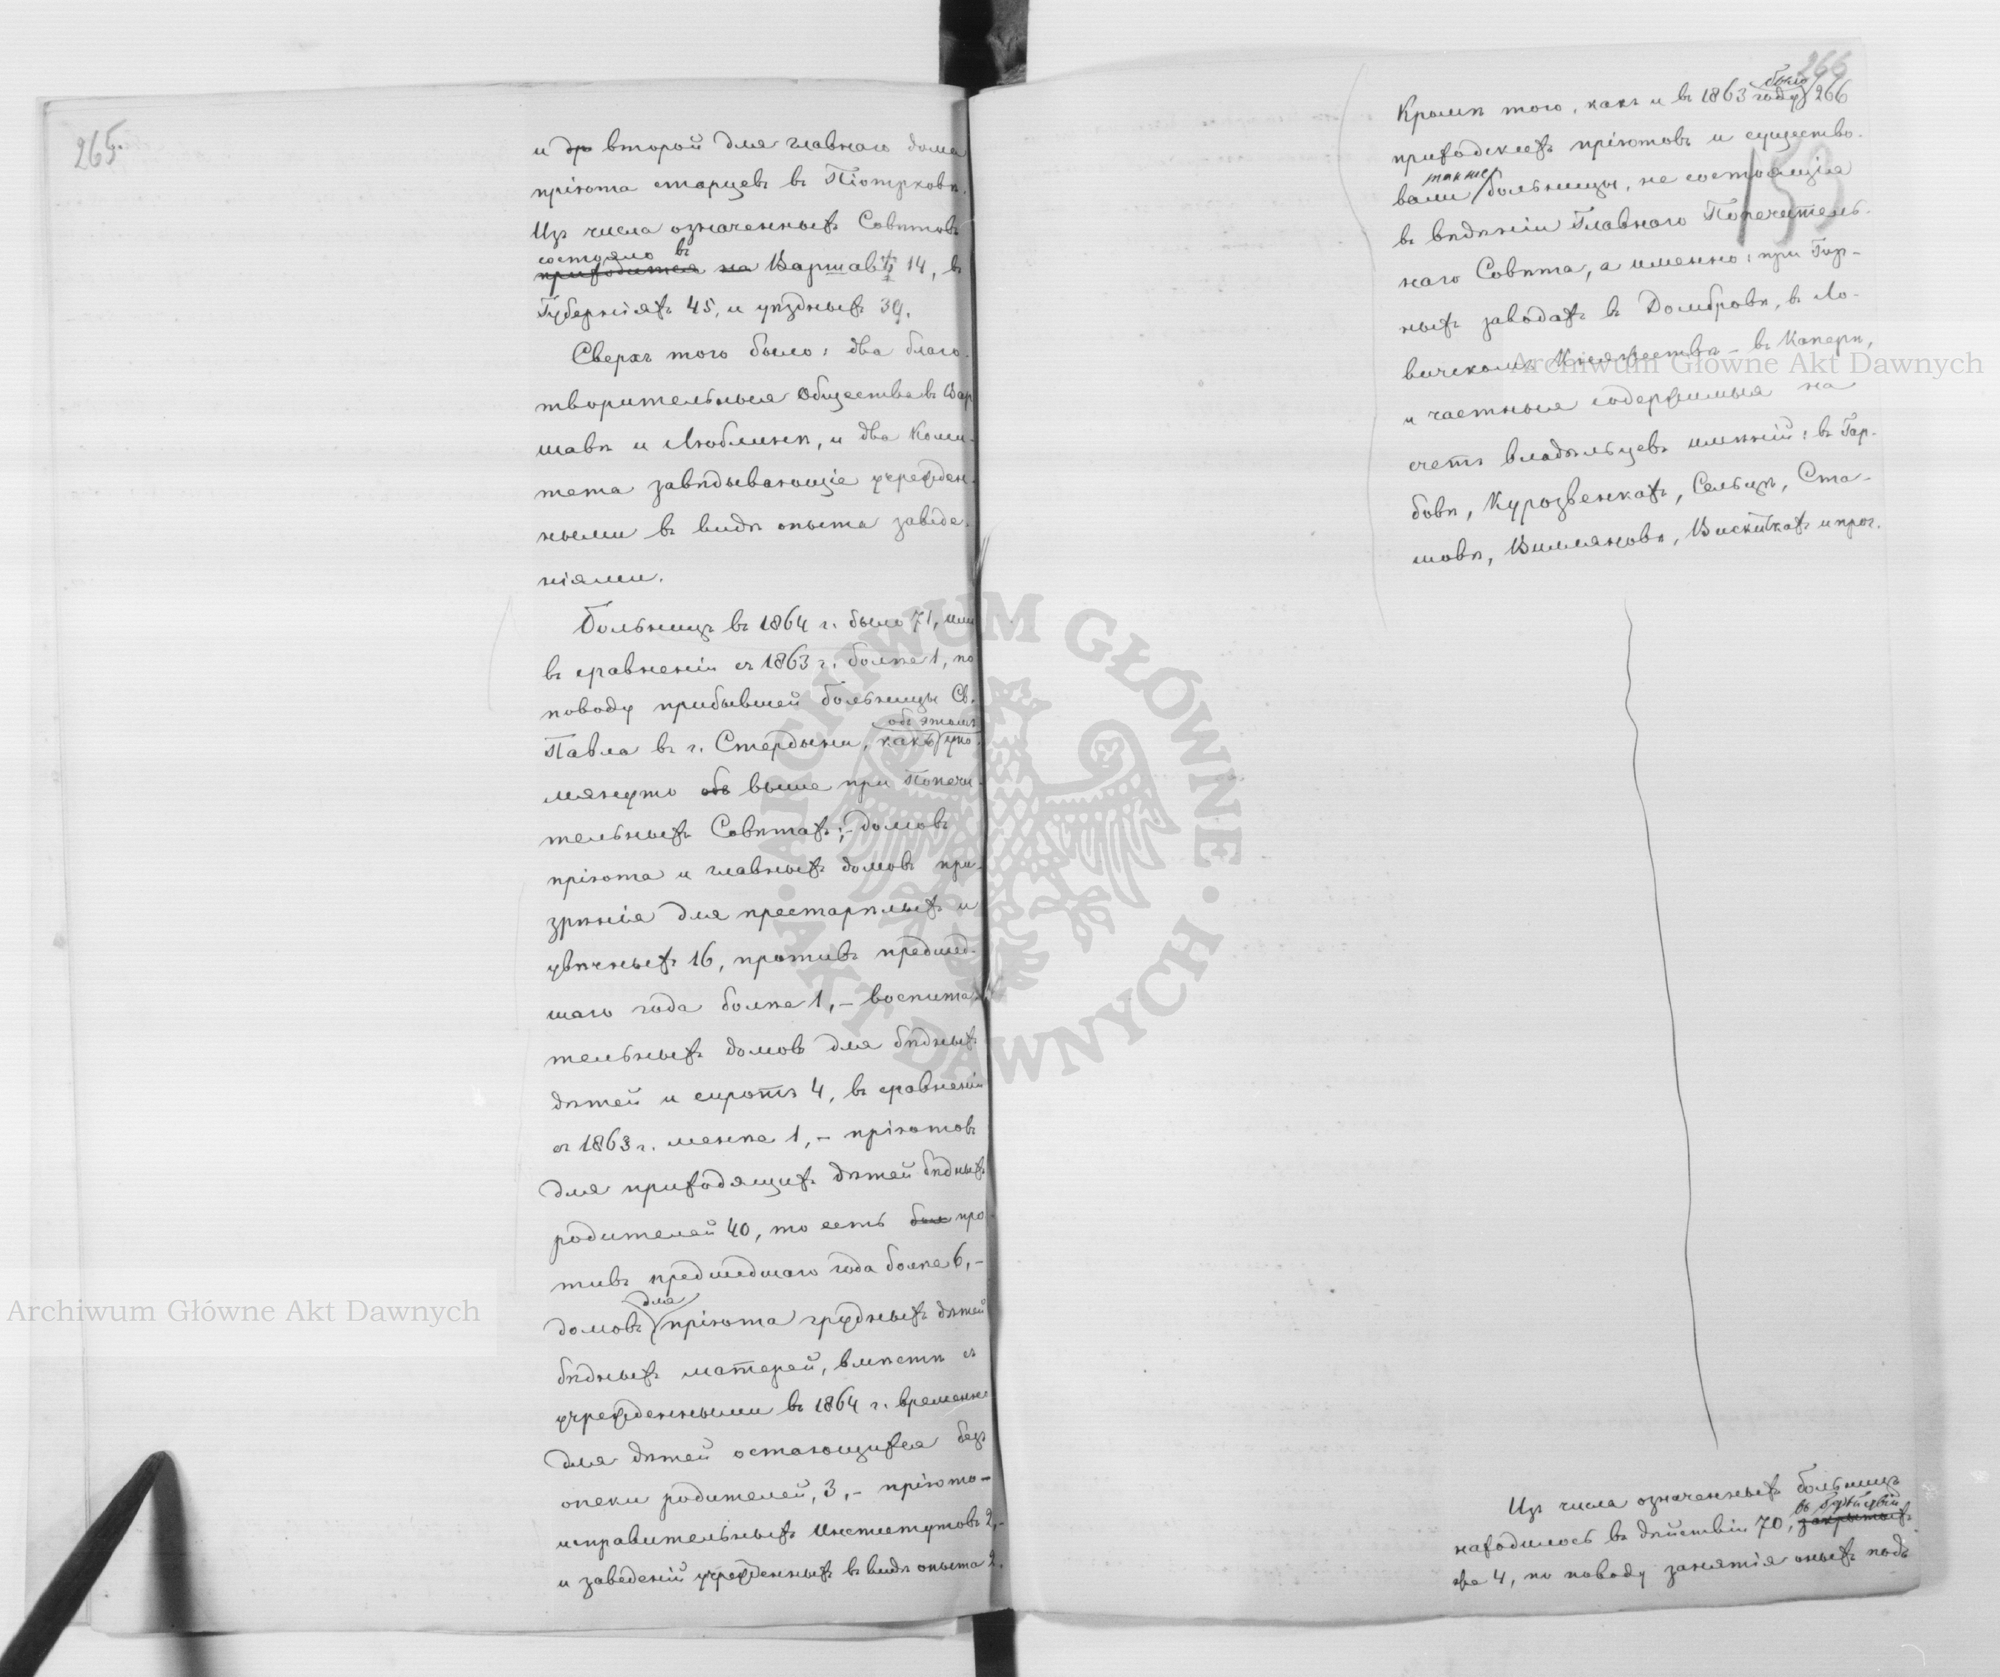 265.
и др второй для главнаго дома
пріюта старцевъ въ Піотрковѣ.
Изъ числа означенныхъ Совѣтовъ
состояло въ
приходится на Варшавѣ 14, въ
Губерніяхъ 45, и уѣздныхъ 39.
Сверхъ того было: два благо-
творительныя Общества въ Вар
шавѣ и Люблинѣ, и два Коми-
тета завѣдывающіе учрежден-
ными въ видѣ опыта заведе-
ніями.
Больницъ въ 1864 г. было 71, или
въ сравненіи съ 1863 г. болѣе 1, по
поводу прибывшей больницы Св.
объ этомъ
Павла въ г. Стердыни, какъ упо-
мянуто объ выше при Попечи-
тельныхъ Совѣтахъ; – домовъ
пріюта и главныхъ домовъ при-
зрѣнія для престарѣлыхъ и
увѣчныхъ 16, противъ предшед-
шаго года болѣе 1, – воспита-
тельныхъ домовъ для бѣдныхъ
дѣтей и сиротъ 4, въ сравненіи
съ 1863 г. менѣе 1, – пріютовъ
для приходящихъ дѣтей бѣдныхъ
родителей 40, то есть бол про-
тивъ предшедшаго года болѣе 6, –
для
домовъ пріюта грудныхъ дѣтей
бѣдныхъ матерей, вмѣстѣ съ
учрежденными въ 1864 г. временно
для дѣтей остающихся безъ
опеки родителей, 3, – пріюто-
исправительныхъ Институтовъ 2, –
и заведеній учрежденныхъ въ видѣ опыта 2.
266
было
Кромѣ того, какъ и въ 1863 году 266
приходскихъ пріютовъ и существо-
также
вали больницы, не состоящія
въ вѣдѣніи Главнаго Попечитель-
наго Совѣта, а именно: при Гор-
ныхъ заводахъ въ Домбровѣ, въ Ло-
вичскомъ Княжествѣ – въ Каперѣ,
и частныя содержимыя на
счетъ владѣльцевъ имѣній: въ Гар-
бовѣ, Курозвенкахъ, Сельцѣ, Ста-
шовѣ, Вилляновѣ, Вискиткахъ и проч.
Изъ числа означенныхъ больницъ
въ бездѣйствіи
находилось въ дѣйствіи 70, закрытыхъ
же 4, по поводу занятія оныхъ подъ
Archiwum Główne Akt Dawnych
Archiwum Główne Akt Dawnych
ARCHIWUM GŁÓWNE · AKT DAWNYCH ·